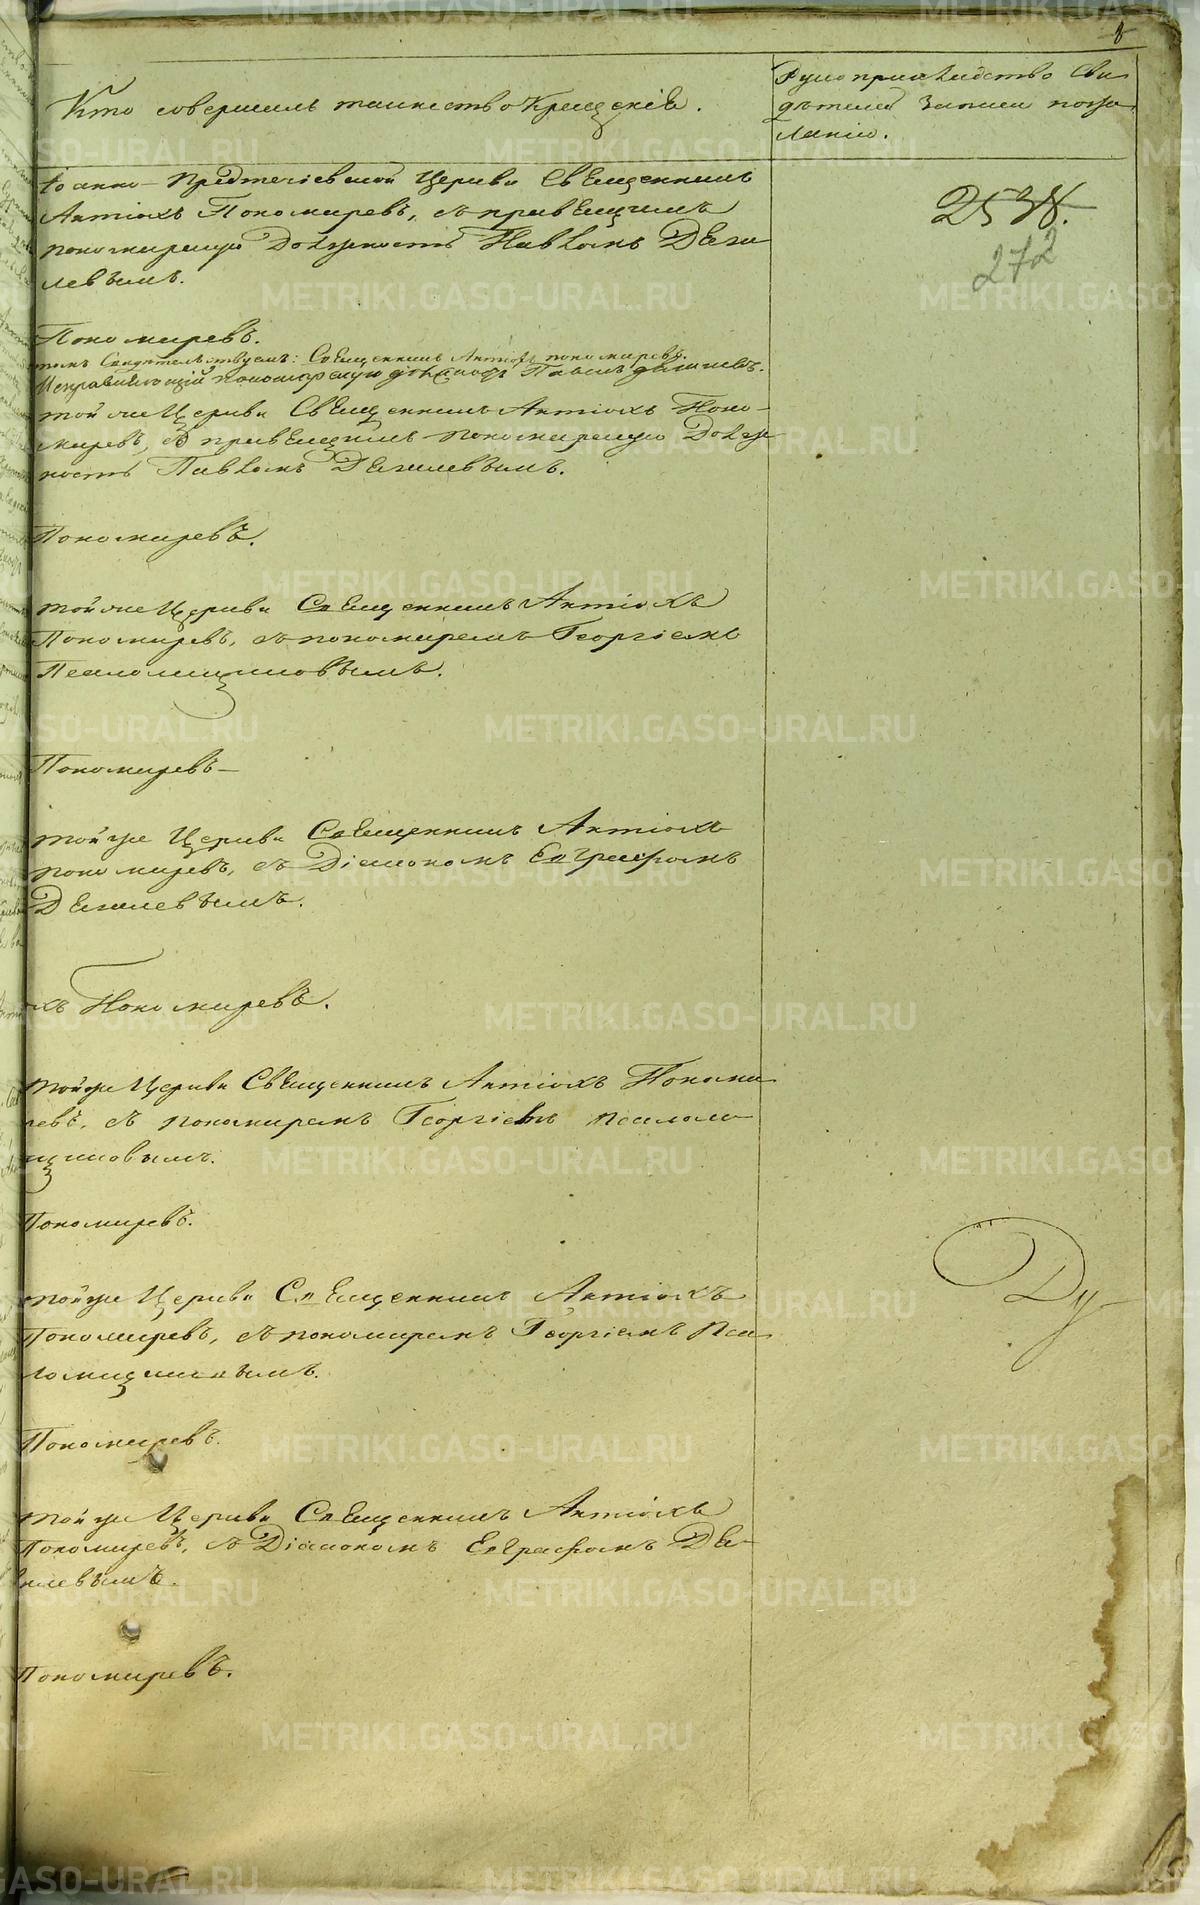 8
Кто совершалъ таинство Крещенія.
Рукоприкладство сви-
дѣтелей записи по же-
ланію.
Іоанно-Предтечіевской Церкви Священникъ
Антіохъ Пономаревъ, съ правящимъ
пономарскую должность Павломъ
левымъ.
2538.
272
Пономаревъ.
Священникъ Антіохъ Пономаревъ.
Исправляющій пономарскую должность Павелъ
той же Церкви Священникъ Антіохъ Поно-
маревъ, съ правящимъ пономарскую долж-
ность Павломъ
Пономаревъ.
той же Церкви Священникъ Антіохъ
Пономаревъ, съ пономаремъ Георгіемъ
Псаломщиковымъ.
Пономаревъ
той же Церкви Священникъ Антіохъ
Пономаревъ, съ Діакономъ Евграфомъ
хъ Пономаревъ.
той же Церкви Священникъ Антіохъ Понома-
ревъ, съ пономаремъ Георгіемъ Псалом-
щиковымъ.
Пономаревъ.
той же Церкви Священникъ Антіохъ
Пономаревъ, съ пономаремъ Георгіемъ Пса-
ломщиковымъ.
Ду
Пономаревъ.
той же Церкви Священникъ Антіохъ
Пономаревъ, съ Діакономъ Евграфомъ
Пономаревъ.
METRIKI.GASO-URAL.RU